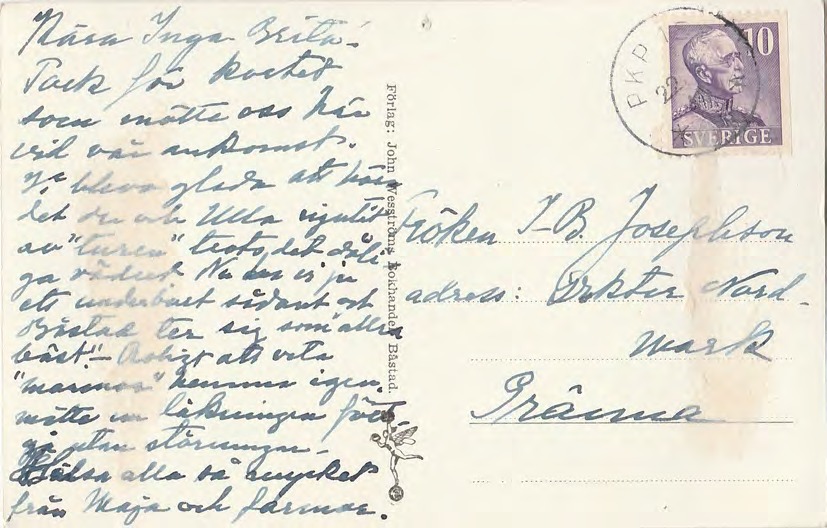 Kära Inga Brita!
Tack för kortet
som mötte oss här
vid vår ankomst.
Vi blevo glada att höra
det du och Ulla njutit
av "turen" trots det dåli-
ga vädret. Nu är vi ju
ett underbart sådant och
Båstad ter sig som allra
bäst! - Roligt att veta
"mormor" hemma igen.
måtte nu läkningen fört-
gå utan störningar.
Hälsa alla så mycket
från Maja och farmor.
Förlag: John Wesströms Bokhandel, Båstad.
PKP
22
10
SVERIGE
Fröken I-B. Josephson
adress: Doktor Nord-
mark
Gränna